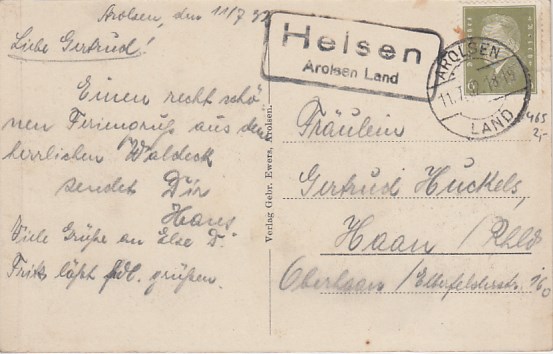 Arolsen, den 11/7 32
Liebe Gertrud!
Einen recht schö-
nen Feriengruß aus dem
herrlichen Waldeck
sendet Dir
Hans
Viele Grüße an Else D.
Fritz läßt frdl. grüßen.
Verlag Gebr. Ewers, Arolsen.
Helsen
Arolsen Land
AROLSEN
11.7. 18-19
LAND
465
2,-
Fräulein
Gertrud Huckels,
Haan / Rhld
Oberhaan / Elberfelderstr.